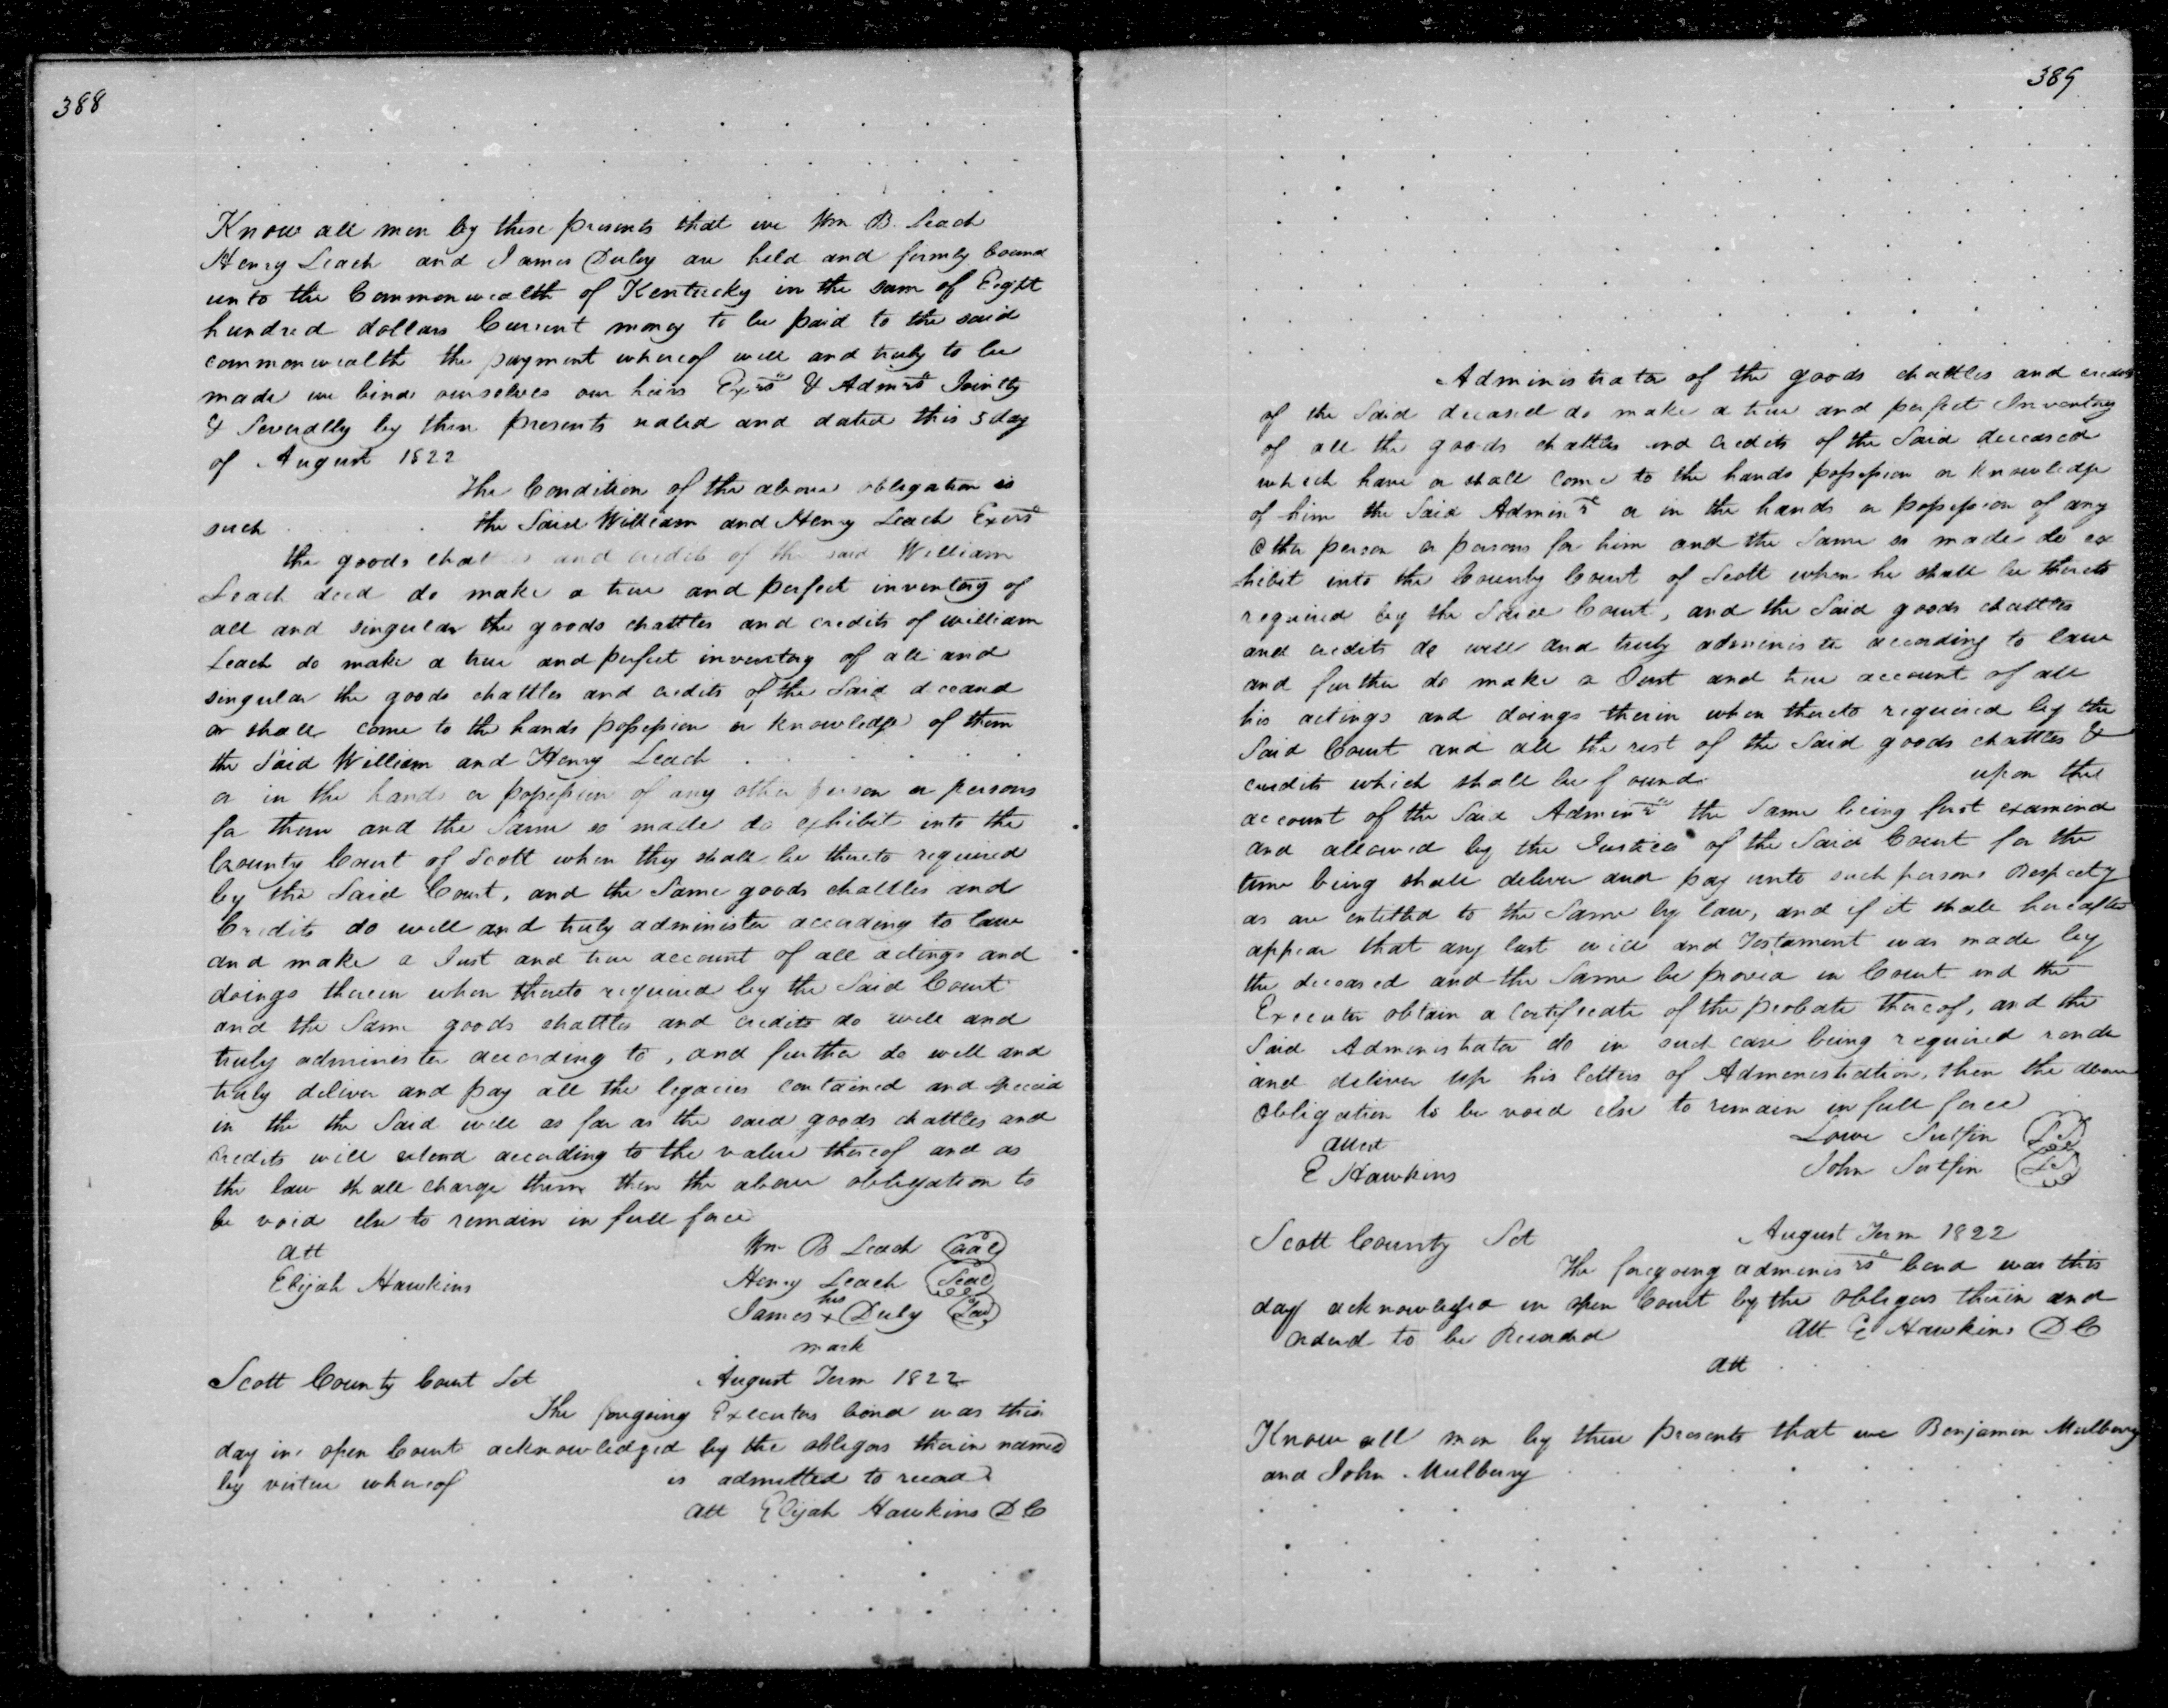 388
Know all men by these presents that we Wm B. Leach
Henry Leach and James Duley are held and firmly bound
unto the Commonwealth of Kentucky in the sum of Eight
hundred dollars Current money to be paid to the said
commonwealth the payment whereof well and truly to be
made we bind ourselves our heirs Exrs & Admrs Jointly
& Severally by these presents sealed and dated this 5 day
of August 1822
The Condition of the above obligation is
such the Said William and Henry Leach Exors
the goods chattles and credits of the said William
Leach decd do make a true and perfect inventory of
all and singular the goods chattles and credits of william
Leach do make a true and perfect inventory of all and
singular the goods chattles and credits of the Said deceasd
or shall come to the hands possession or knowledge of them
the Said William and Henry Leach
or in the hands or possession of any other person or persons
for them and the Same so made do exhibit into the
County Court of Scott when they shall be thereto required
by the Said Court, and the Same goods chattles and
Credits do well and truly administer according to law
and make a Just and true account of all actings and
doings therein when thereto required by the Said Court
and the Same goods chattles and credits do well and
truly administer according to, and further do well and
truly deliver and pay all the legacies contained and
in the the Said will as far as the said goods chattles and
credits will extend according to the value thereof and as
the law shall charge them then the above obligation to
be void else to remain in full force
att Wm B Leach Seal
Elijah Hawkins Henry Leach Seal
his
James x Duly Seal
mark
Scott County Court Sct August Term 1822
The foregoing Executors bond was this
day in open Court acknowledged by the obligors therein named
by virtue whereof is admitted to record
Att Elijah Hawkins D C
389
Administrator of the goods chattles and credits
of the Said deceased do make a true and perfect Inventory
of all the goods chattles and credits of the Said deceased
which have or shall come to the hands possession or knowledge
of him the Said Adminr or in the hands or possession of any
other person or persons for him and the Same so made do ex
hibit into the County Court of Scott when he shall be thereto
required by the Said Court, and the Said goods chattles
and credits do well and truly administer according to law
and further do make a Just and true account of all
his actings and doings therin when thereto required by the
Said Court and all the rest of the Said goods chattles &
credits which shall be found upon the
account of the Said Adminr the Same being first examined
and allowed by the Justices of the Said Court for the
time being shall deliver and pay unto such persons Respecty
as are entitled to the Same by law, and if it shall hereafter
appear that any last will and Testament was made by
the deceased and the Same be proved in Court and the
Executor obtain a Certificate of the probate thereof, and the
Said Administrator do in such case being required rende
and deliver up his letters of Administration, then the above
obligation to be void else to remain in full force
attest Lowe Sutfin Seal
E Hawkins John Sutfin Seal
Scott County Sct August Term 1822
The foregoing adminisrs bond was this
day acknowledged in open Court by the Obligors therin and
orderd to be Recorded Att E Hawkins D C
att
Know all men by these presents that we Benjamin Mulberry
and John Mulberry